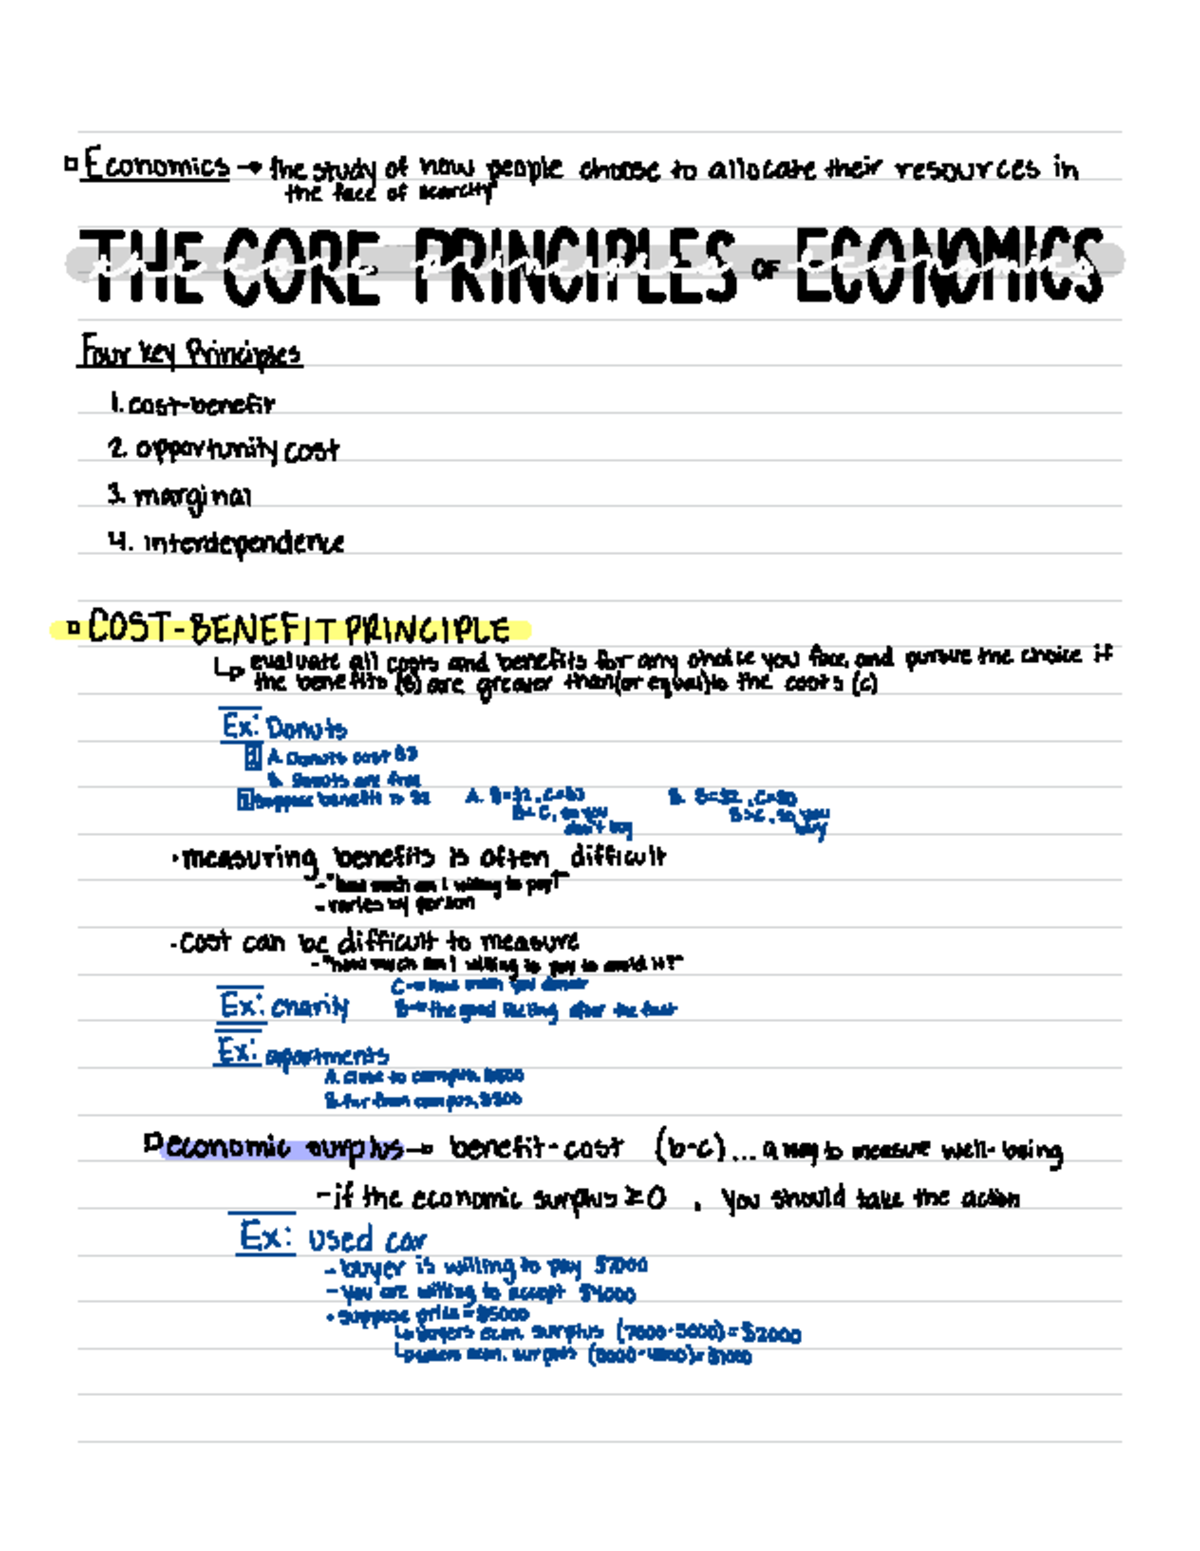 Economics → the study of how people choose to allocate their resources in
the face of scarcity"
THE CORE PRINCIPLES OF ECONOMICS
the core principles economics
Four Key Principles
1. cost-benefit
2. opportunity cost
3. marginal
4. interdependence
COST-BENEFIT PRINCIPLE
↳ evaluate all costs and benefits for any choice you face, and pursue the choice if
the benefits (B) are greater than (or equal) to the costs (c)
Ex: Donuts
A. Donuts cost $3
B. Donuts are free
suppose benefit is $2 A. B=$2, C=$3 B. B=$2, C=$0
B<C, so you B>C, so you
don't buy buy
• measuring benefits is often difficult
- "how much am I willing to pay?"
- varies by person
• cost can be difficult to measure
- "how much am I willing to pay to avoid it?"
C → how much you donate
Ex: charity B → the good feeling after the fact
Ex: apartments
A. close to campus,
B. far from campus, $500
economic surplus → benefit-cost (b-c)... a way to measure well-being
- if the economic surplus ≥ 0, you should take the action
Ex: used car
- buyer is willing to pay $7000
- you are willing to accept $4000
• suppose price = $5000
↳ buyers econ. surplus (7000-5000) = $2000
↳ econ. surplus = $1000